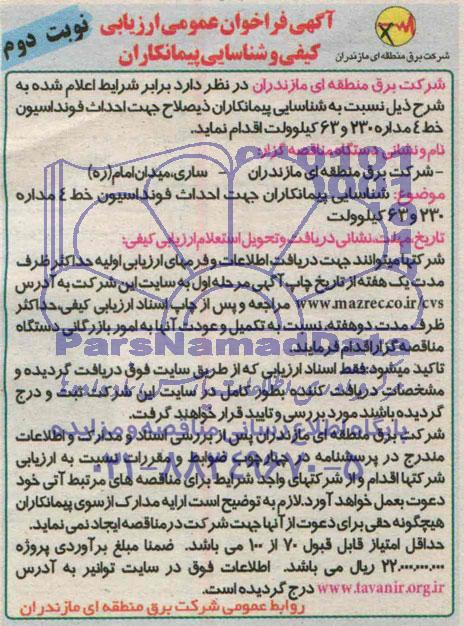 آگهی فراخوان عمومی ارزیابی
کیفی و شناسایی پیمانکاران
نوبت دوم
شرکت برق منطقه ای مازندران
شرکت برق منطقه ای مازندران در نظر دارد برابر شرایط اعلام شده به
شرح ذیل نسبت به شناسایی پیمانکاران ذیصلاح جهت احداث فونداسیون
خط ٤ مداره ۲۳۰ و ۶۳ کیلوولت اقدام نماید.
نام و نشانی دستگاه مناقصه گزار:
- شرکت برق منطقه ای مازندران - ساری، میدان امام(ره)
موضوع: شناسایی پیمانکاران جهت احداث فونداسیون خط ٤ مداره
۲۳۰ و ۶۳ کیلوولت
تاریخ، مهلت، نشانی دریافت و تحویل استعلام ارزیابی کیفی:
شرکتها میتوانند جهت دریافت اطلاعات و فرمهای ارزیابی اولیه حداکثر ظرف
مدت یک هفته از تاریخ چاپ آگهی مرحله اول به سایت این شرکت به آدرس
www.mazrec.co.ir/cvs مراجعه و پس از چاپ اسناد ارزیابی کیفی حداکثر
ظرف مدت دو هفته، نسبت به تکمیل و عودت آنها به امور بازرگانی دستگاه
مناقصه گزار اقدام فرمایند.
تاکید میشود: فقط اسناد ارزیابی که از طریق سایت فوق دریافت گردیده و
مشخصات دریافت کننده بطور کامل در سایت این شرکت ثبت و درج
گردیده باشند مورد بررسی و تایید قرار خواهند گرفت.
شرکت برق منطقه ای مازندران پس از بررسی اسناد و مدارک و اطلاعات
مندرج در پرسشنامه در چهارچوب ضوابط و مقررات نسبت به ارزیابی
شرکتها اقدام و از شرکتهای واجد شرایط برای مناقصه های مرتبط آتی خود
دعوت بعمل خواهد آورد. لازم به توضیح است ارایه مدارک از سوی پیمانکاران
هیچگونه حقی برای دعوت از آنها جهت شرکت در مناقصه ایجاد نمی نماید.
حداقل امتیاز قابل قبول ۷۰ از ۱۰۰ می باشد. ضمنا مبلغ برآوردی پروژه
۲۲,۰۰۰,۰۰۰,۰۰۰ ریال می باشد. اطلاعات فوق در سایت توانیر به آدرس
www.tavanir.org.ir درج گردیده است.
روابط عمومی شرکت برق منطقه ای مازندران
ParsNamadData
پایگاه اطلاع رسانی مناقصه و مزایده
۰۲۱-۸۸۳۴۹۶۷۰-۵